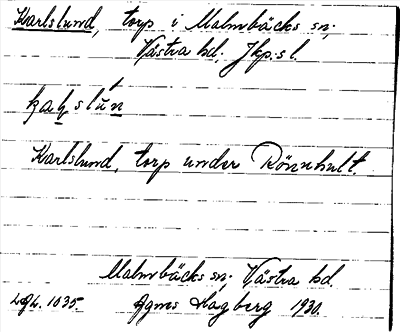 Karlslund, torp i Malmbäcks sn,
Västra hd. Jkp:s l.
kaḷslún
Karlslund, torp under Rönnhult.
Malmbäcks sn; Västra hd.
1035. Agnes Hagberg 1930.